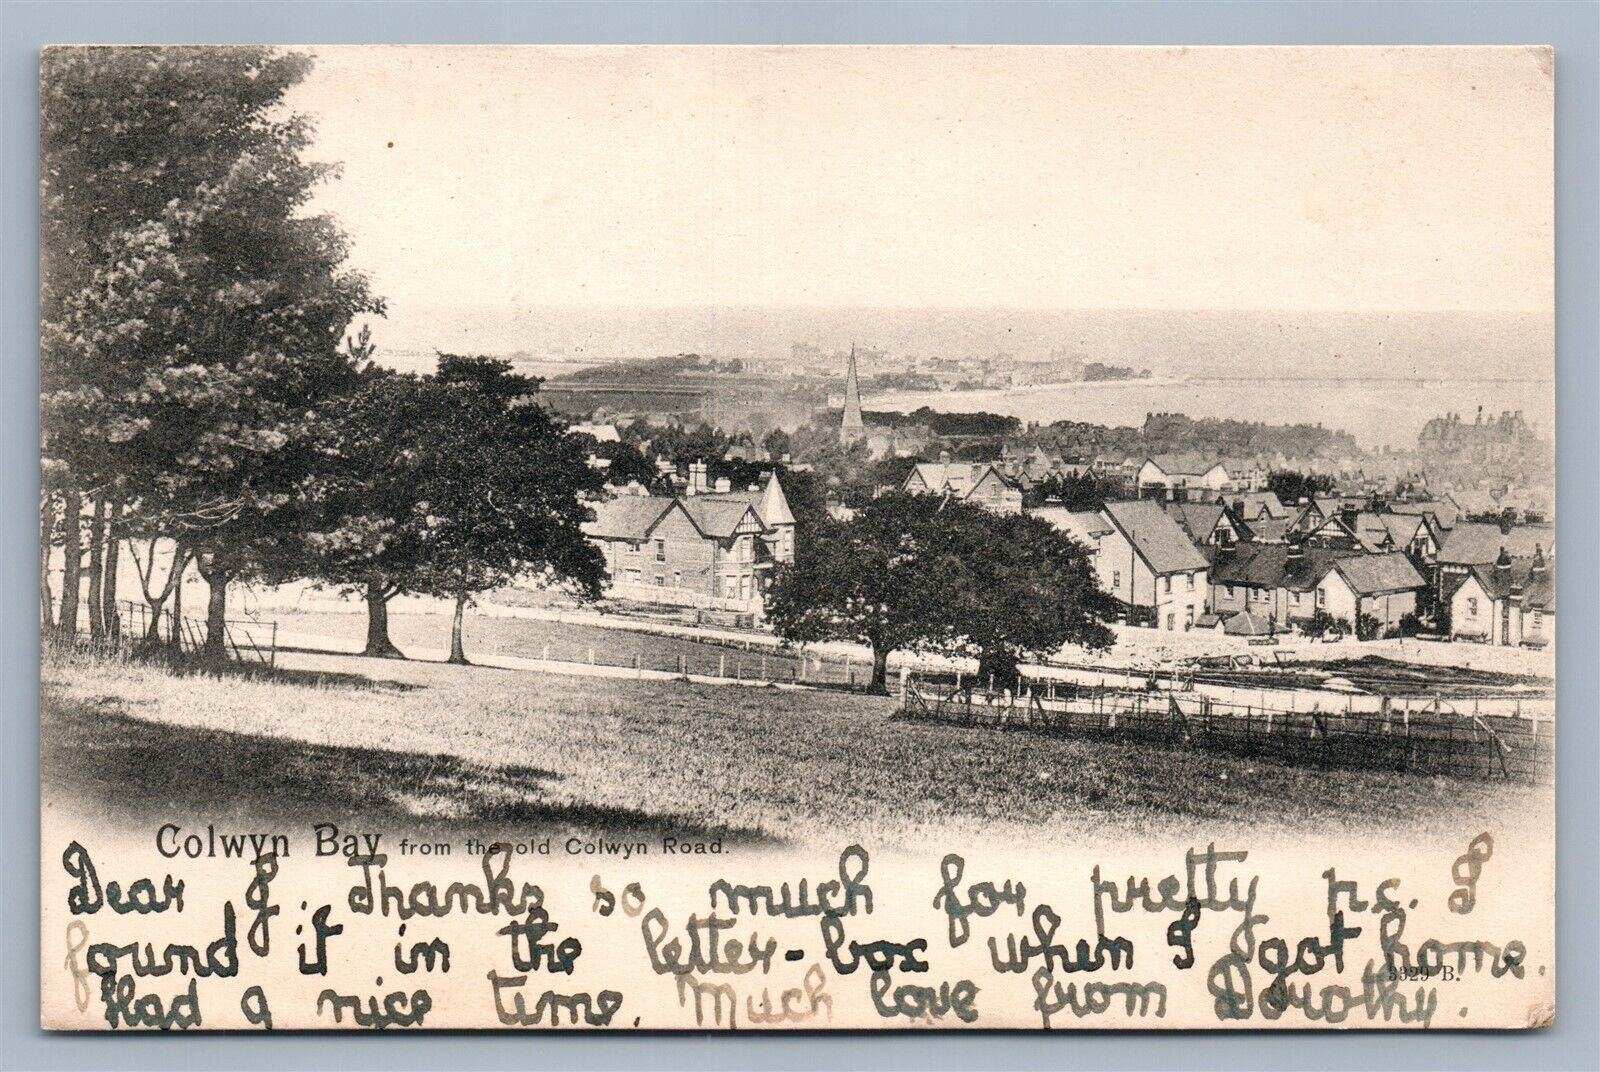 Colwyn Bay from the old Colwyn Road.
Dear J. Thanks so much for pretty p.c. I
found it in the letter-box when I got home.
3329 B.
Had a nice time. Much love from Dorothy.